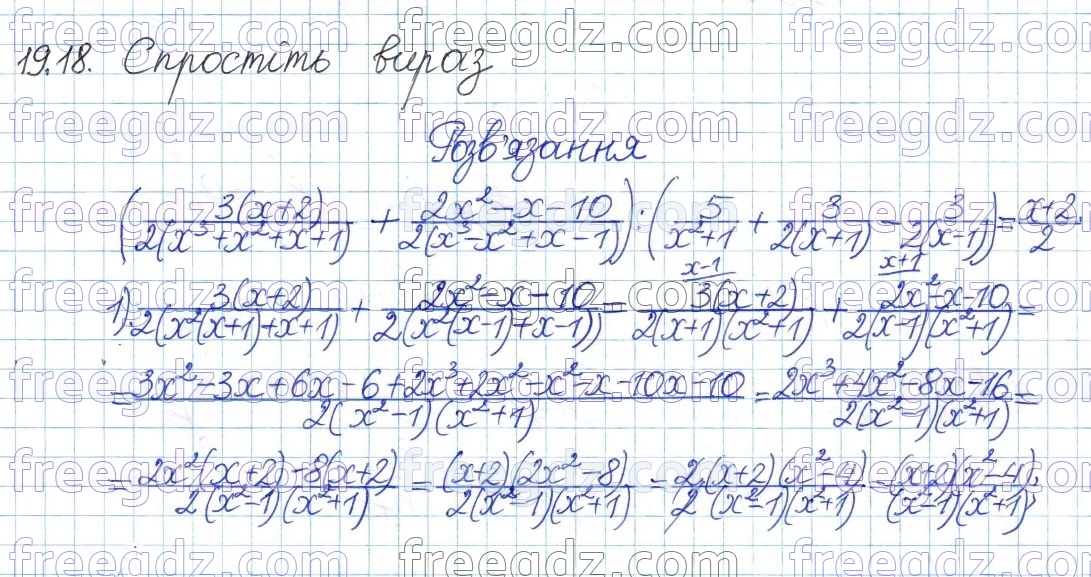 19.18. Спростіть вираз
Розв'язання
(3(x+2)/2(x³+x²+x+1) + 2x²-x-10/2(x³-x²+x-1)) : (5/x²+1 + 3/2(x+1) - 3/2(x-1)) = x+2/2.
1) 3(x+2)/2(x²(x+1)+x+1) + 2x²-x-10/2(x²(x-1)+x-1)) = x-1 3(x+2)/2(x+1)(x²+1) + x+1 2x²-x-10/2(x-1)(x²+1) =
= 3x²-3x+6x-6+2x³+2x²-x²-x-10x-10/2(x²-1)(x²+1) = 2x³+4x²-8x-16/2(x²-1)(x²+1) =
= 2x²(x+2)-8(x+2)/2(x²-1)(x²+1) = (x+2)(2x²-8)/2(x²-1)(x²+1) = 2(x+2)(x²-4)/2(x²-1)(x²+1) = (x+2)(x²-4)/(x²-1)(x²+1);
freegdz.com